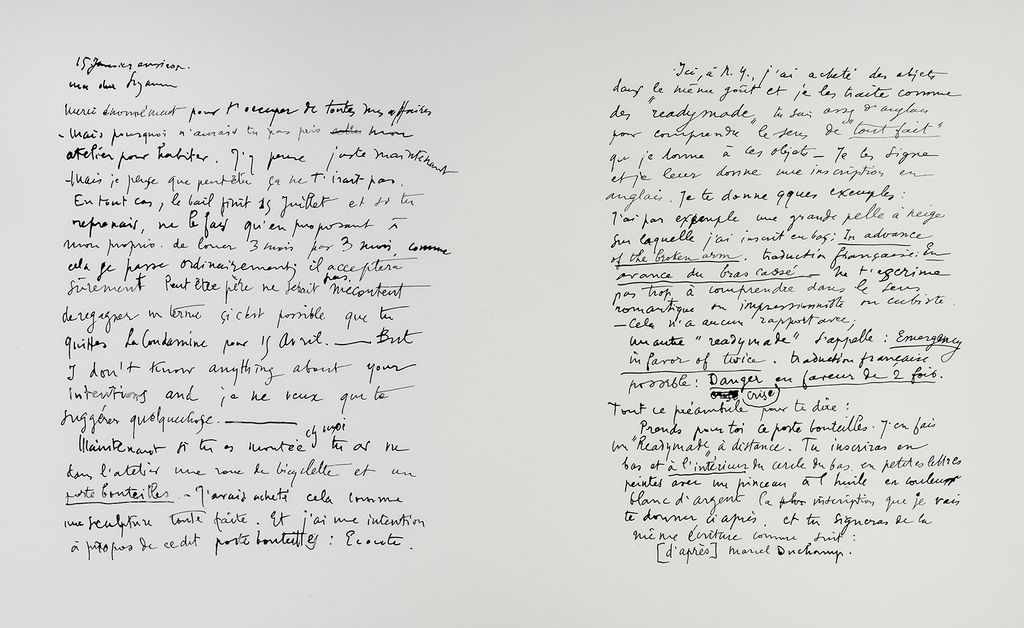 15 Janvier environ.
ma chère Suzanne
Merci énormément pour t'occuper de toutes mes affaires
- Mais pourquoi n'aurais tu pas pris mon
atelier pour habiter. J'y pense juste maintenant
- Mais je pense que peut être ça ne t'irait pas.
En tout cas, le bail finit 15 Juillet et si tu
reprenais, ne le fais qu'en proposant à
mon proprio. de louer 3 mois par 3 mois, comme
cela se passe ordinairement; il acceptera
sûrement Peut être père ne serait pas mécontent
de regagner un terme si c'est possible que tu
quittes La Condamine pour 15 Avril. — But
I don't know anything about your
intentions and je ne veux que te
suggérer quelque chose. —
Maintenant si tu es montée chez moi tu as vu
dans l'atelier une roue de bicyclette et un
porte bouteilles. - J'avais acheté cela comme
une sculpture toute faite. Et j'ai une intention
à propos de ce dit porte bouteilles : Ecoute.
Ici, à N.Y., j'ai acheté des objets
dans le même goût et je les traite comme
des "readymade" tu sais assez d'anglais
pour comprendre le sens de "tout fait"
que je donne à ces objets - Je les signe
et je leur donne une inscription en
anglais. Je te donne qques exemples:
J'ai par exemple une grande pelle à neige
sur laquelle j'ai inscrit en bas: In advance
of the broken arm. traduction française: En
avance du bras cassé - Ne t'escrime
pas trop à comprendre dans le sens
romantique ou impressionniste ou cubiste.
- Cela n'a aucun rapport avec;
Un autre "readymade" s'appelle : Emergency
in favor of twice. traduction française
possible : Danger en faveur de 2 fois.
crise
Tout ce préambule pour te dire :
Prends pour toi ce porte bouteilles. J'en fais
un "Readymade" à distance. Tu inscriras en
bas et à l'intérieur du cercle du bas, en petites lettres
peintes avec un pinceau à l'huile en couleur
blanc d'argent la inscription que je vais
te donner ci après, et tu signeras de la
même écriture comme suit :
[d'après] Marcel Duchamp.